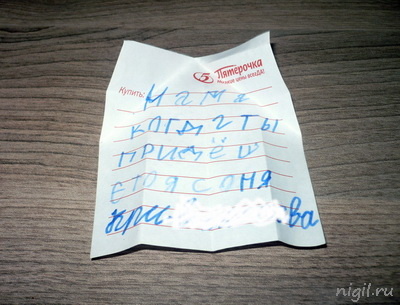 5 Пятерочка
НИЗКИЕ ЦЕНЫ ВСЕГДА!
Купить: Мама
КОГДА ТЫ
ПРИДЁШ
ЕТО Я СОНЯ
nigil.ru